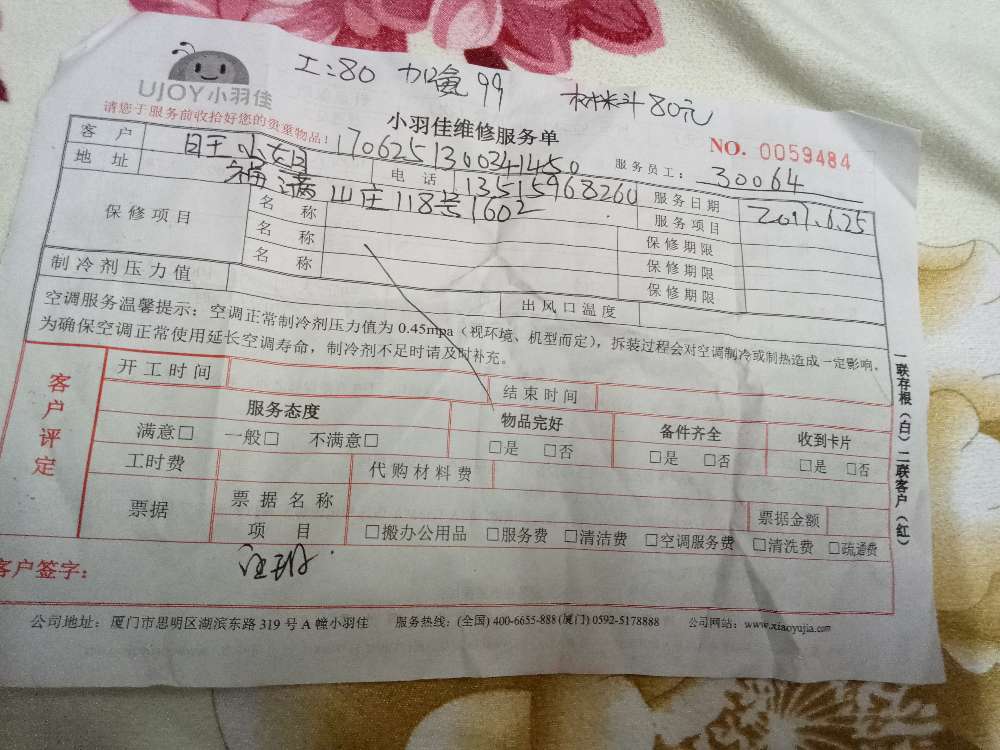 工:80 加氟99 材料80元
UJOY小羽佳
请您于服务前收拾好您的贵重物品!
小羽佳维修服务单
NO. 0059484
客户 小姐 1706251300241450 服务员工: 30064
地址 福满山庄118号1602 电话 13515968260 服务日期 2017.6.25
保修项目 名称 服务项目
名称 保修期限
名称 保修期限
保修期限
制冷剂压力值 出风口温度
空调服务温馨提示:空调正常制冷剂压力值为0.45mpa(视环境、机型而定),拆装过程会对空调制冷或制热造成一定影响。
为确保空调正常使用延长空调寿命,制冷剂不足时请及时补充。
客户评定
开工时间 结束时间
服务态度 物品完好 备件齐全 收到卡片
满意□ 一般□ 不满意□ □是 □否 □是 □否 □是 □否
工时费 代购材料费
票据 票据名称 票据金额
项目 □搬办公用品 □服务费 □清洁费 □空调服务费 □清洗费 □疏通费
客户签字:
一联存根(白)二联客户(红)
公司地址:厦门市思明区湖滨东路319号A幢小羽佳 服务热线:(全国)400-6655-888(厦门)0592-5178888 公司网站:www.xiaoyujia.com